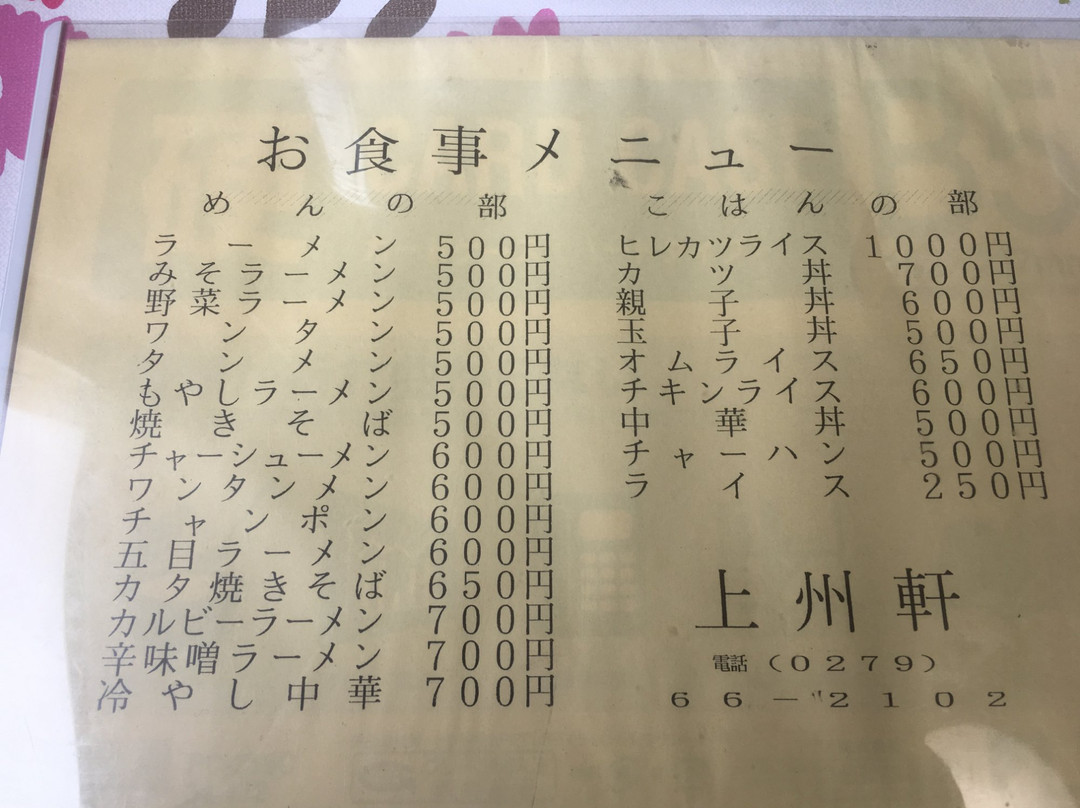 お食事メニュー
めんの部
ラーメン 500円
みそラーメン 500円
野菜ラーメン 500円
ワンタン 500円
タンメン 500円
もやしラーメン 500円
焼きそば 500円
チャーシューメン 600円
ワンタンメン 600円
チャンポン 600円
五目ラーメン 600円
カタ焼きそば 650円
カルビーラーメン 700円
辛味噌ラーメン 700円
冷やし中華 700円
ごはんの部
ヒレカツライス 1000円
カツ丼 700円
親子丼 600円
玉子丼 500円
オムライス 650円
チキンライス 600円
中華丼 500円
チャーハン 500円
ライス 250円
上州軒
電話(0279)
66-2102